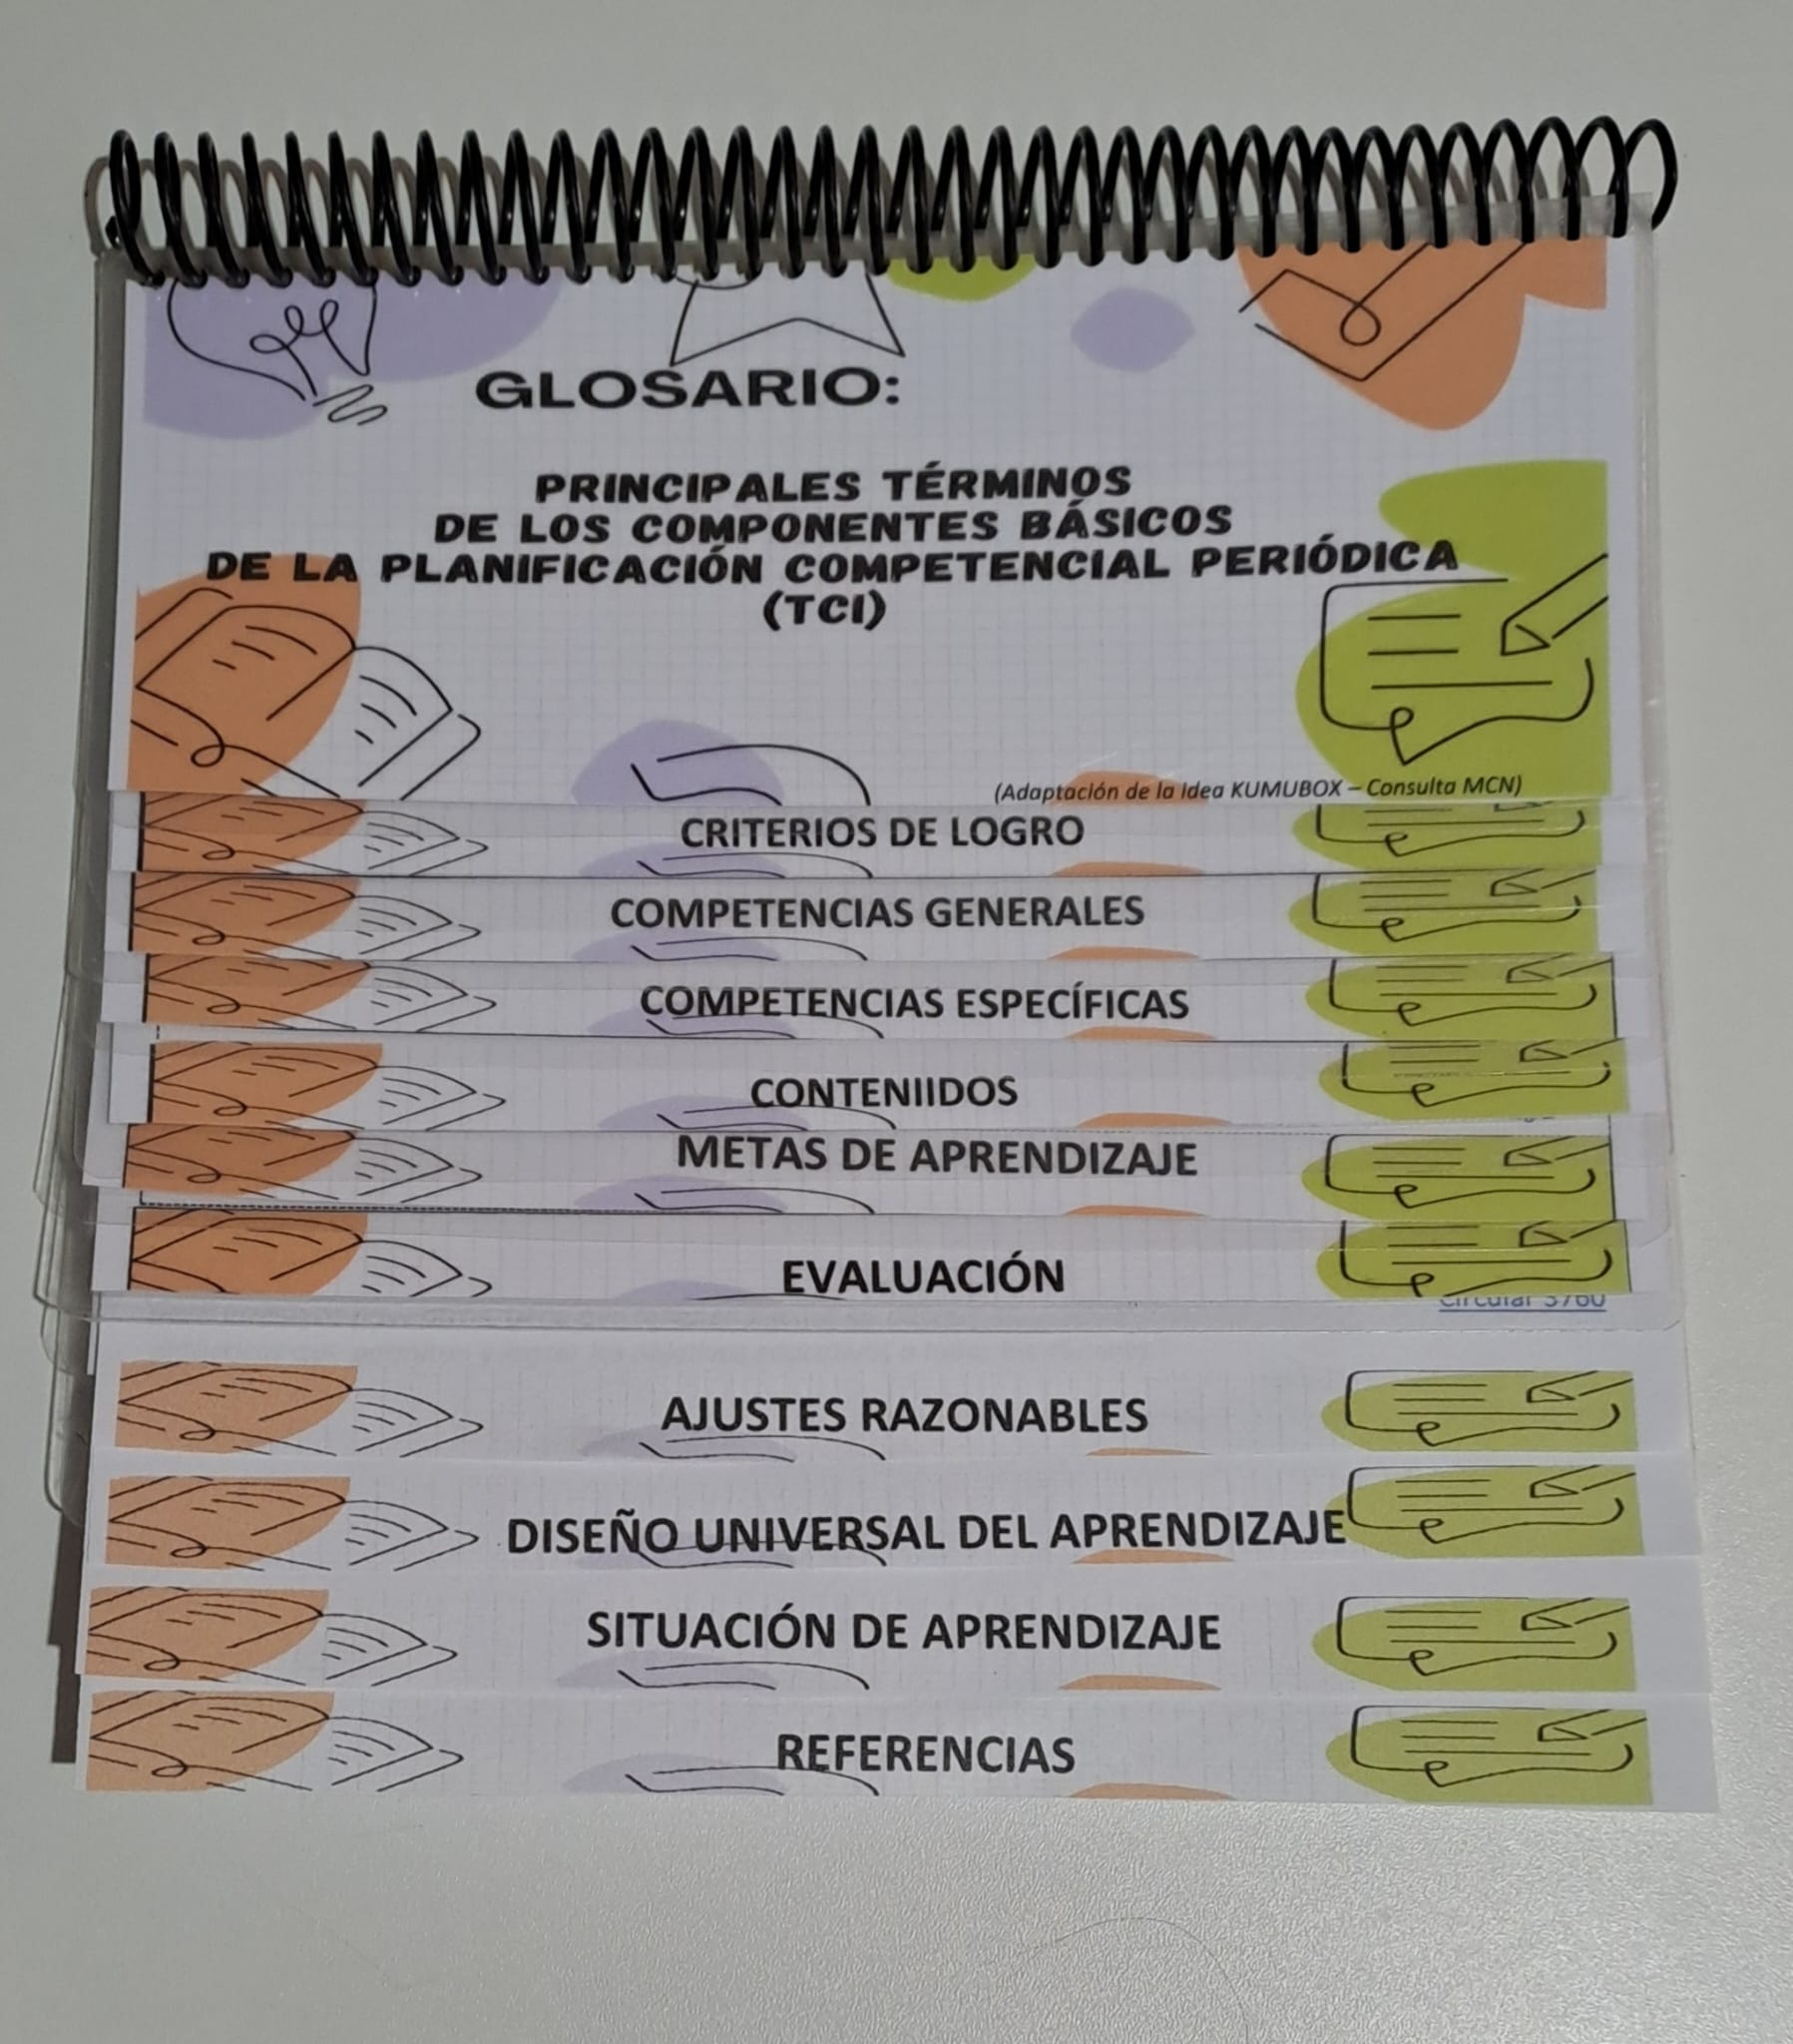 GLOSARIO:
PRINCIPALES TÉRMINOS
DE LOS COMPONENTES BÁSICOS
DE LA PLANIFICACIÓN COMPETENCIAL PERIÓDICA
(TCI)
(Adaptación de la idea KUMUBOX – Consulta MCN)
CRITERIOS DE LOGRO
COMPETENCIAS GENERALES
COMPETENCIAS ESPECÍFICAS
CONTENIIDOS
METAS DE APRENDIZAJE
EVALUACIÓN
Circular 3760
AJUSTES RAZONABLES
DISEÑO UNIVERSAL DEL APRENDIZAJE
SITUACIÓN DE APRENDIZAJE
REFERENCIAS